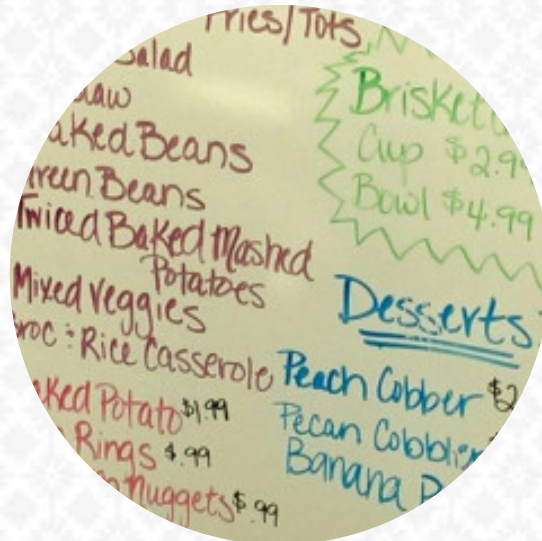 Fries/Tots
Salad
Baked Beans
Green Beans
Twiced Baked Mashed
Potatoes
Mixed Veggies
Broc & Rice Casserole
Baked Potato $1.99
Rings $.99
Nuggets $.99
Brisket
Cup $2.99
Bowl $4.99
Desserts
Peach Cobber $2
Pecan Cobbl
Banana P